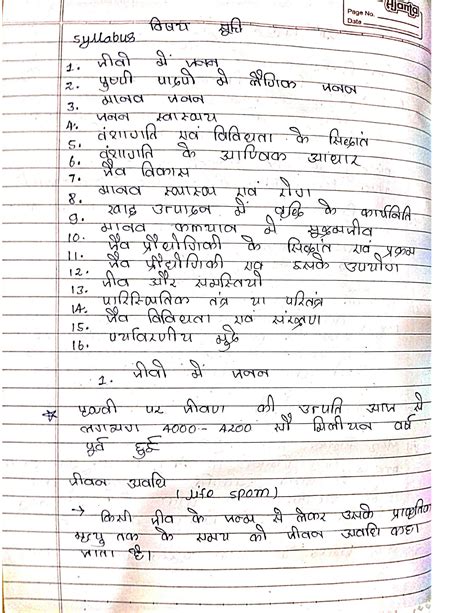 Page No.
Date
विषय सूची
Syllabus
1. जीवो में जनन
2. पुष्पी पादपो में लैंगिक जनन
3. मानव जनन
4. जनन स्वास्थय
5. वंशागति एवं विविधता के सिद्धांत
6. वंशागति के आण्विक आधार
7. जैव विकास
8. मानव स्वास्थय एवं रोग
9. खाद्य उत्पादन में वृद्धि के कार्यनिति
10. मानव कल्याण में सूक्ष्मजीव
11. जैव प्रौद्योगिकी के सिद्धांत एवं प्रक्रम
12. जैव प्रौद्योगिकी एवं उसके उपयोग
13. जीव और समस्टियाँ
14. पारिस्थितिक तंत्र या परितंत्र
15. जैव विविधता एवं संरक्षण
16. पर्यावरणीय मुद्दे
1. जीवो में जनन
पृथ्वी पर जीवण की उत्पति आज से
लगभग 4000 - 4200 सौ मिलीयन वर्ष
पूर्व हुई
जीवन अवधि
(life spam)
→ किसी जीव के जन्म से लेकर उसके प्राकृतिक
मृत्यु तक के समय को जीवन अवधि कहा
जाता है।